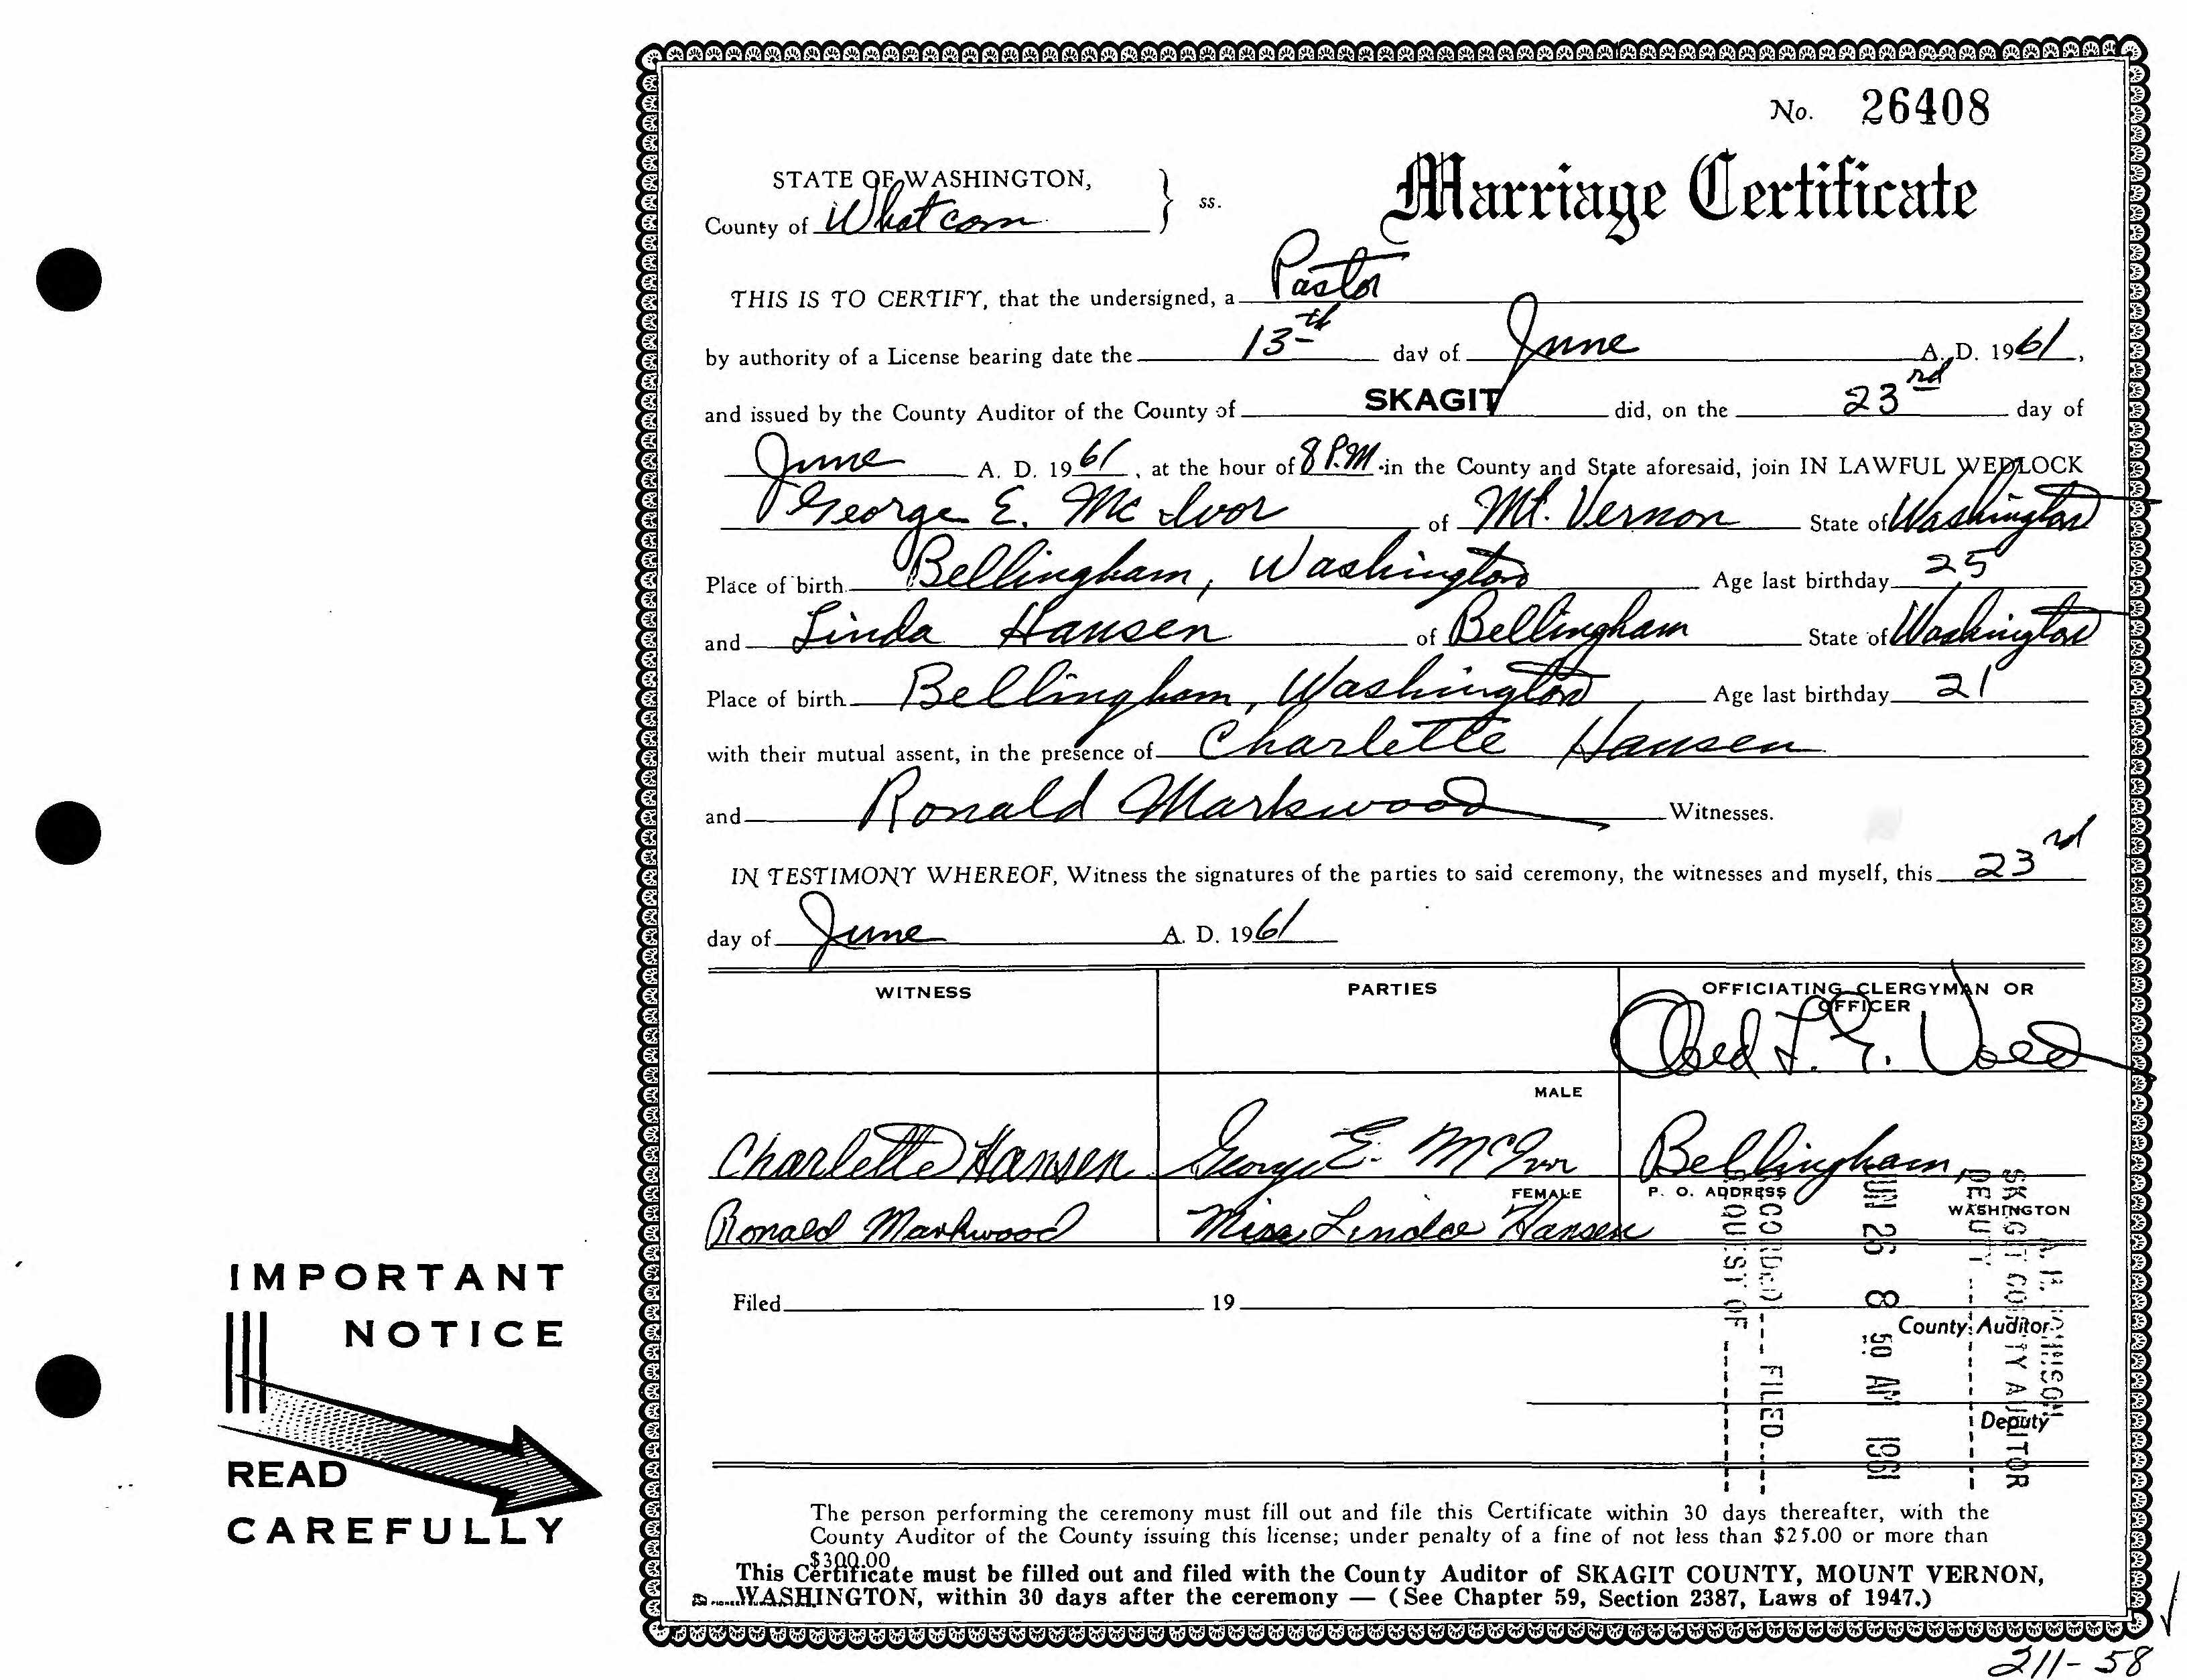 No. 26408
STATE OF WASHINGTON,
County of Whatcom } ss.
Marriage Certificate
THIS IS TO CERTIFY, that the undersigned, a Pastor
by authority of a License bearing date the 13th day of June A. D. 1961,
and issued by the County Auditor of the County of SKAGIT did, on the 23rd day of
June A. D. 1961, at the hour of 8 P.M. in the County and State aforesaid, join IN LAWFUL WEDLOCK
George E. Mc Ivor of Mt. Vernon State of Washington
Place of birth Bellingham, Washington Age last birthday 25
and Linda Hansen of Bellingham State of Washington
Place of birth Bellingham, Washington Age last birthday 21
with their mutual assent, in the presence of Charlette Hansen
and Ronald Markwood Witnesses.
IN TESTIMONY WHEREOF, Witness the signatures of the parties to said ceremony, the witnesses and myself, this 23rd
day of June A. D. 1961
WITNESS PARTIES OFFICIATING CLERGYMAN OR
OFFICER
MALE
Charlette Hansen George E. McIvor Bellingham,
FEMALE P. O. ADDRESS WASHINGTON
Ronald Markwood Miss Linda Hansen
Filed 19
County Auditor
Deputy
RECORDED FILED
REQUEST OF
JUN 26 8 50 AM 1961
SKAGIT COUNTY AUDITOR
DEPUTY
IMPORTANT
NOTICE
READ
CAREFULLY
The person performing the ceremony must fill out and file this Certificate within 30 days thereafter, with the
County Auditor of the County issuing this license; under penalty of a fine of not less than $25.00 or more than
$300.00
This Certificate must be filled out and filed with the County Auditor of SKAGIT COUNTY, MOUNT VERNON,
WASHINGTON, within 30 days after the ceremony — (See Chapter 59, Section 2387, Laws of 1947.)
211-58